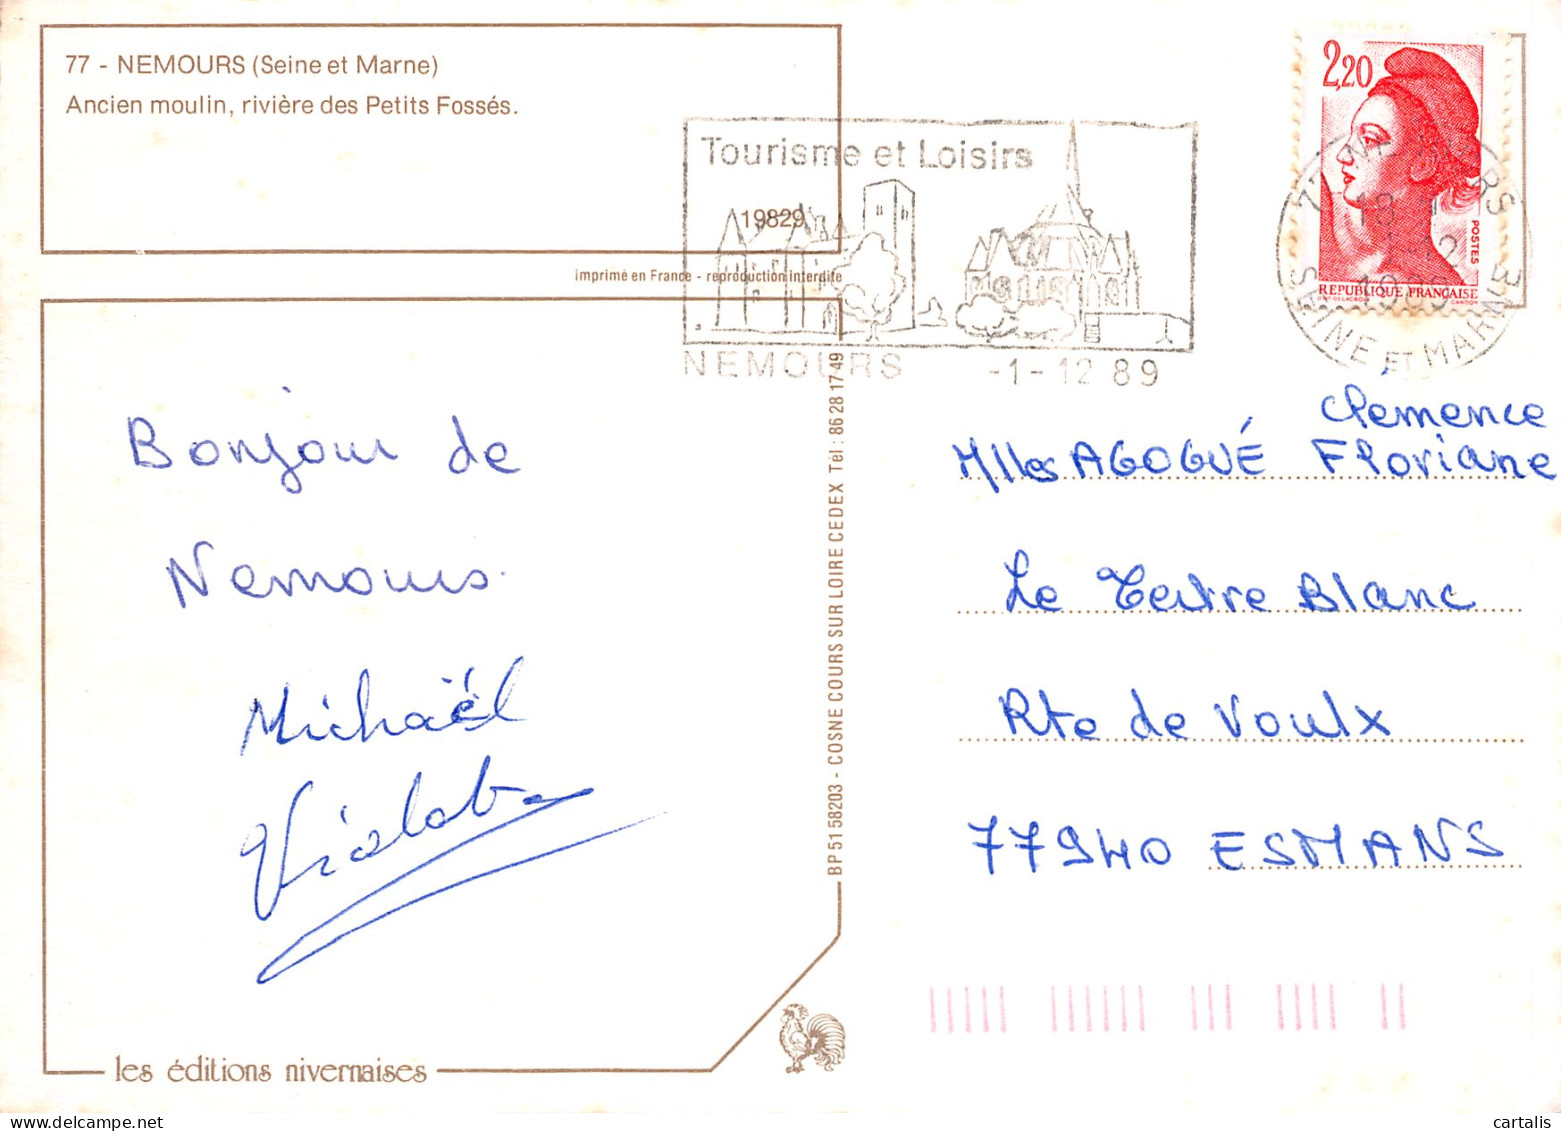 77 - NEMOURS (Seine et Marne)
Ancien moulin, rivière des Petits Fossés.
19829
Imprimé en France - reproduction interdite
Tourisme et Loisirs
NEMOURS -1-12 89
2,20
POSTES
REPUBLIQUE FRANÇAISE
77 NEMOURS
18
1-12
1989
SEINE ET MARNE
Bonjour de
Nemours.
Michaël
BP 51 58203 - COSNE COURS SUR LOIRE CEDEX Tél : 86 28 17 49
Clémence
Mlles AGOGUÉ Floriane
Le Tertre Blanc
Rte de Voulx
77940 ESMANS
les éditions nivernaises
cartalis